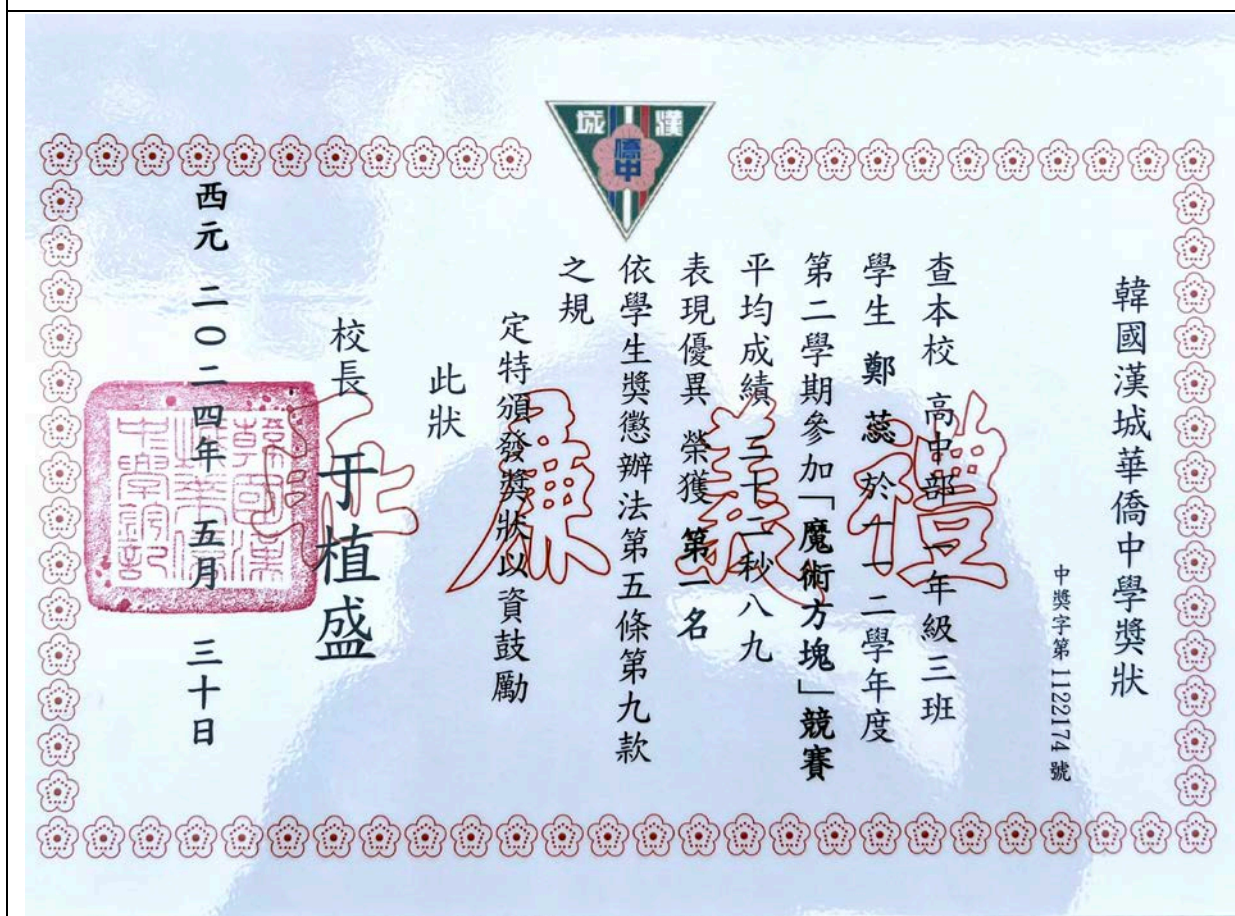 漢城
僑中
韓國漢城華僑中學獎狀
中獎字第 1122174 號
查本校 高中部 一年級三班
學生 鄭 蕊 於一一二學年度
第二學期參加「魔術方塊」競賽
平均成績 三十二秒八九
表現優異 榮獲 第一名
依學生獎懲辦法第五條第九款
之規
定特頒發獎狀以資鼓勵
此狀
校長 于植盛
西元 二〇二四年 五月 三十日
禮義廉恥
韓國漢
城華僑
中學鈐記